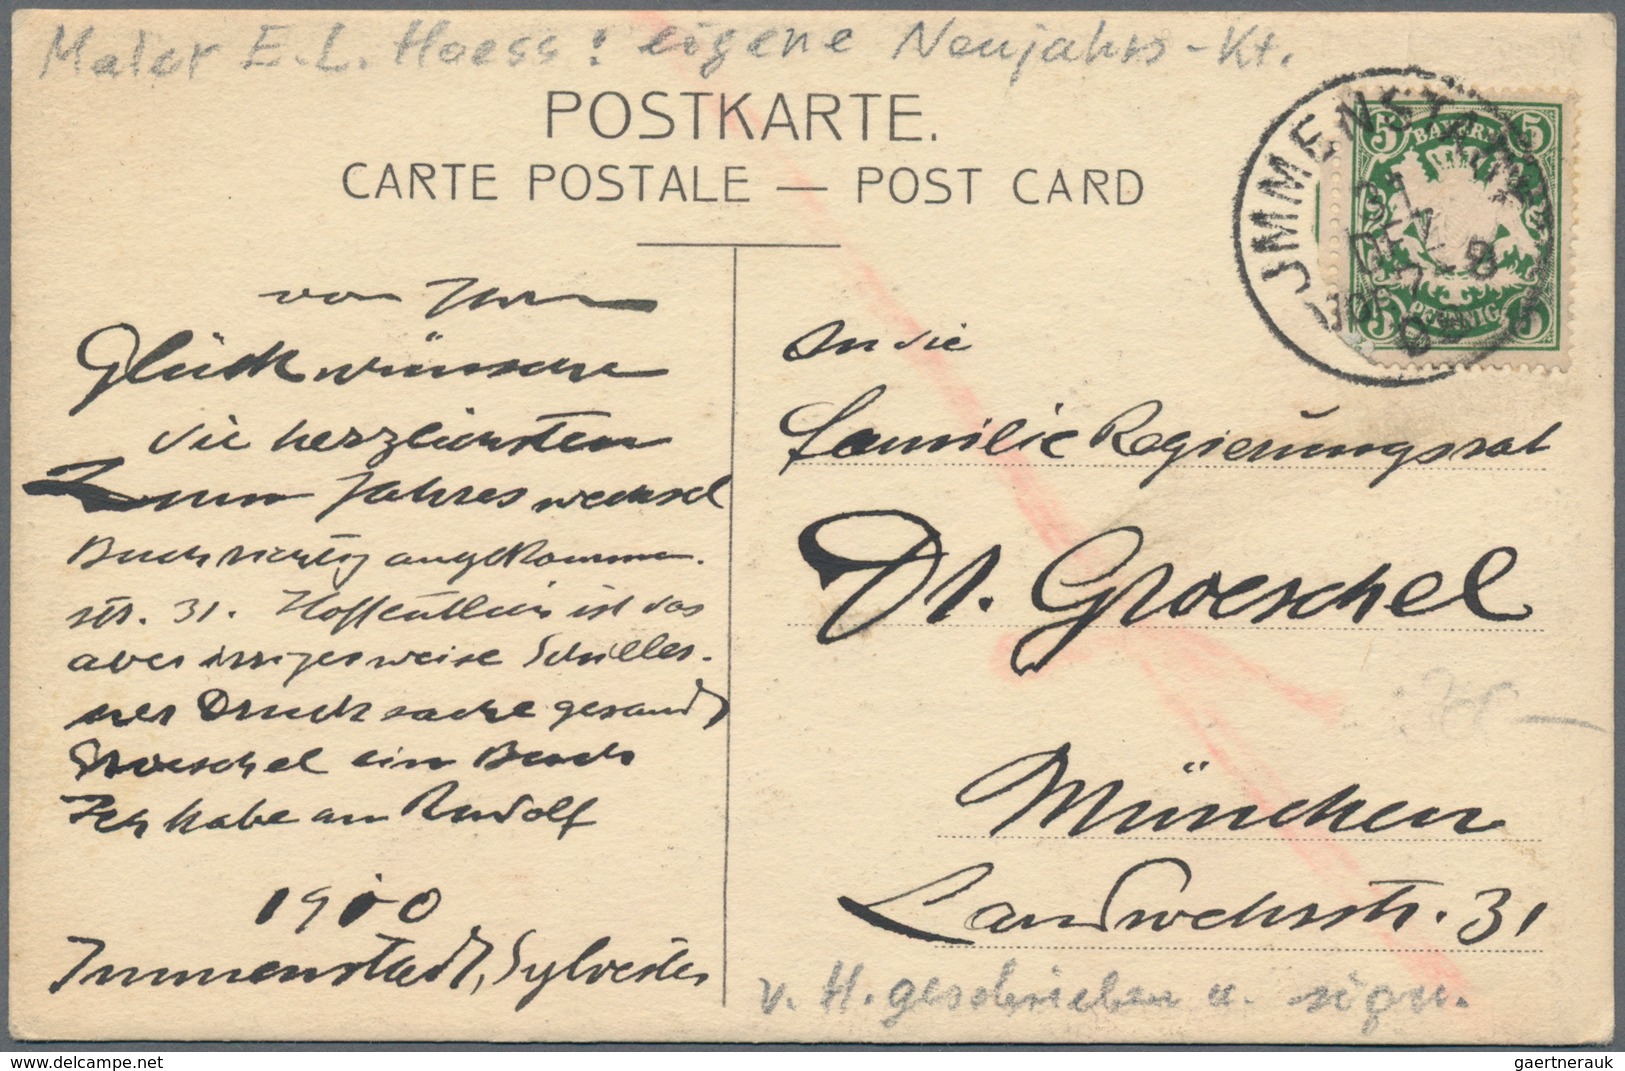 Maler E. L. Hoess: eigene Neujahrs-Kt.
POSTKARTE.
CARTE POSTALE — POST CARD
IMMENSTADT
31
DEZ
BAYERN
5 5
PFENNIG
5 5
von Ihren
Glückwünsche
die herzlichsten
Zum Jahreswechsel
Buch richtig angekommen.
str. 31. Hoffentlich ist das
aber irrigerweise Schiller-
ner Drucksache gesandt
Groeschel ein Buch
Ich habe an Rudolf
1910
Immenstadt, Sylvester
An die
Familie Regierungsrat
Dr. Groeschel
München
Landwehrstr. 31
v. H. geschrieben u. sign.
gaertnerauk